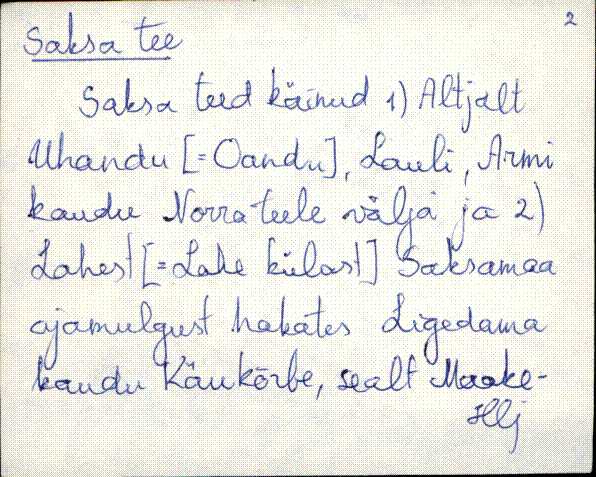 2
Saksa tee
Saksa teed käinud 1) Altjalt
Uhandu [=Oandu], Lauli, Armi
kaudu Norra-teele välja ja 2)
Lahest [=Lahe külast] Saksamaa
ajamulgust hakates Ligedama
kaudu Käukõrbe, sealt Maake-
Hlj